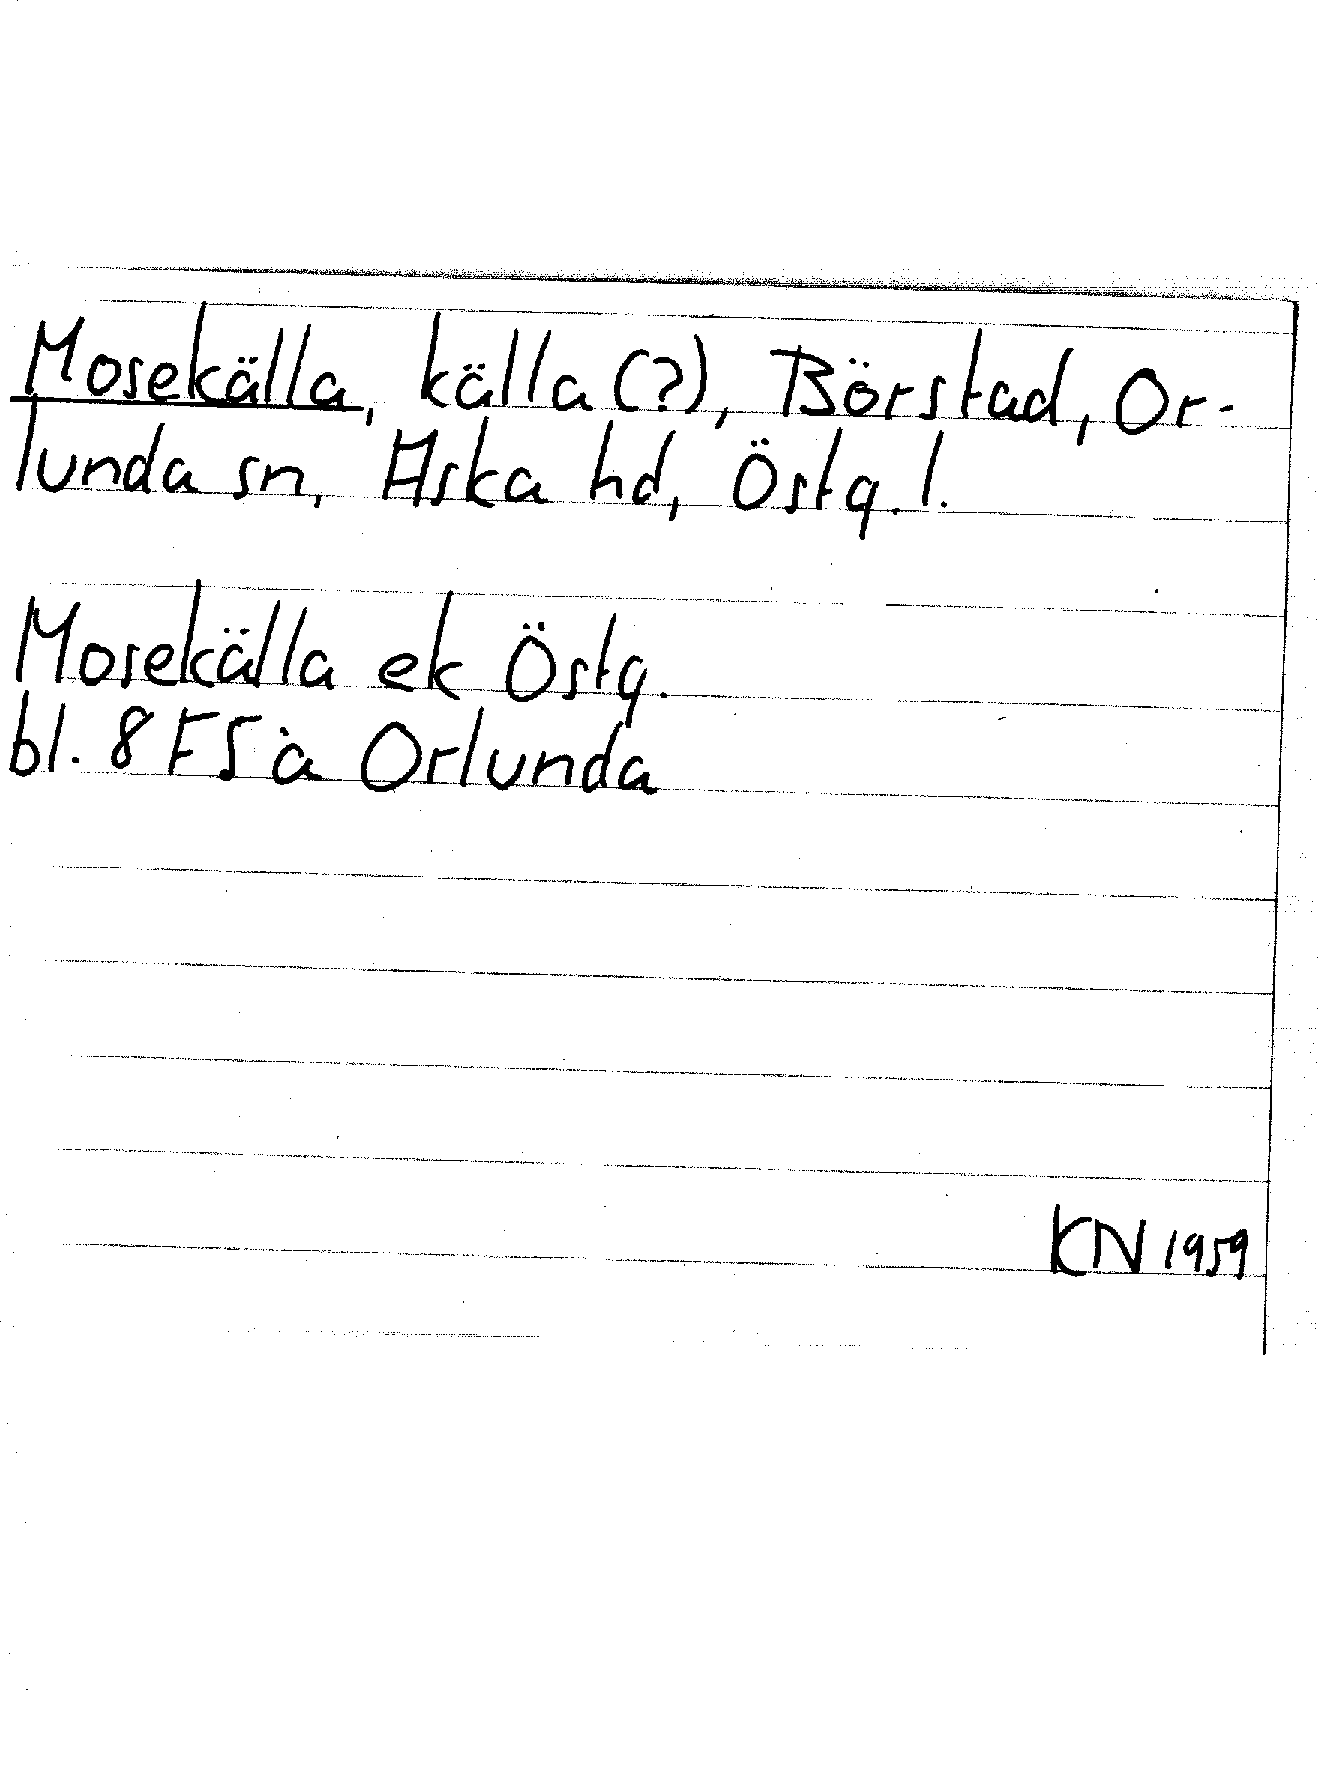 Mosekälla, källa (?), Börstad, Or-
lunda sn, Aska hd, Östg. l.
Mosekälla ek Östg.
bl. 8 FS à Orlunda
KN 1959